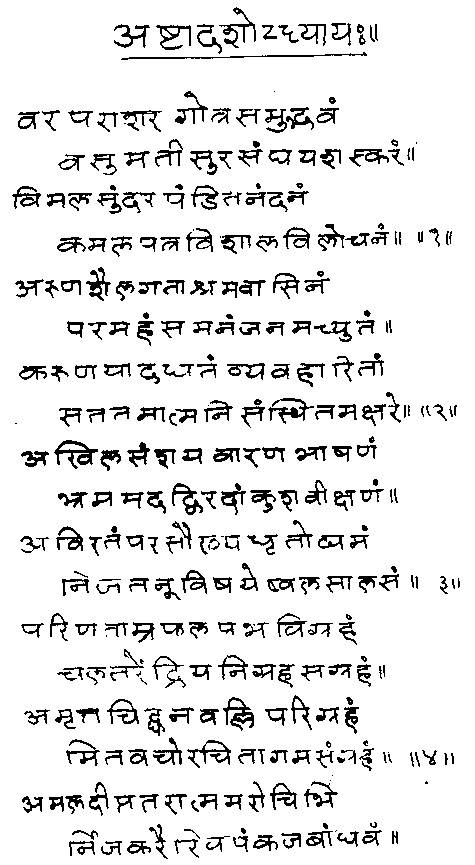 अष्टादशोऽध्यायः॥
वर पराशर गोत्रसमुद्भवं
वसुमतीसुरसंघयशस्करं॥
विमलसुंदर पंडितनंदनं
कमलपत्रविशालविलोचनं॥ ॥१॥
अरुणशैलगताश्रमवासिनं
परमहंसमनंजनमच्युतं॥
करुणयादधतं व्यवहारितां
सततमात्मनि संस्थितमक्षरे॥ ॥२॥
अखिलसंशयवारणभाषणं
भ्रममदद्विरदांकुशवीक्षणं॥
अविरतंपरसौख्यधृतोद्यमं
निजतनूविषयेष्वलसालसं॥ ३॥
परिणताम्रफलप्रभविग्रहं
चलतरेंद्रियनिग्रहसग्रहं॥
अमृतचिद्घनवल्लिपरिग्रहं
मितवचोरचितागमसंग्रहं॥ ॥४॥
अमलदीप्ततरात्ममरीचिभि
र्निजकरैरिवपंकजबांधवं॥